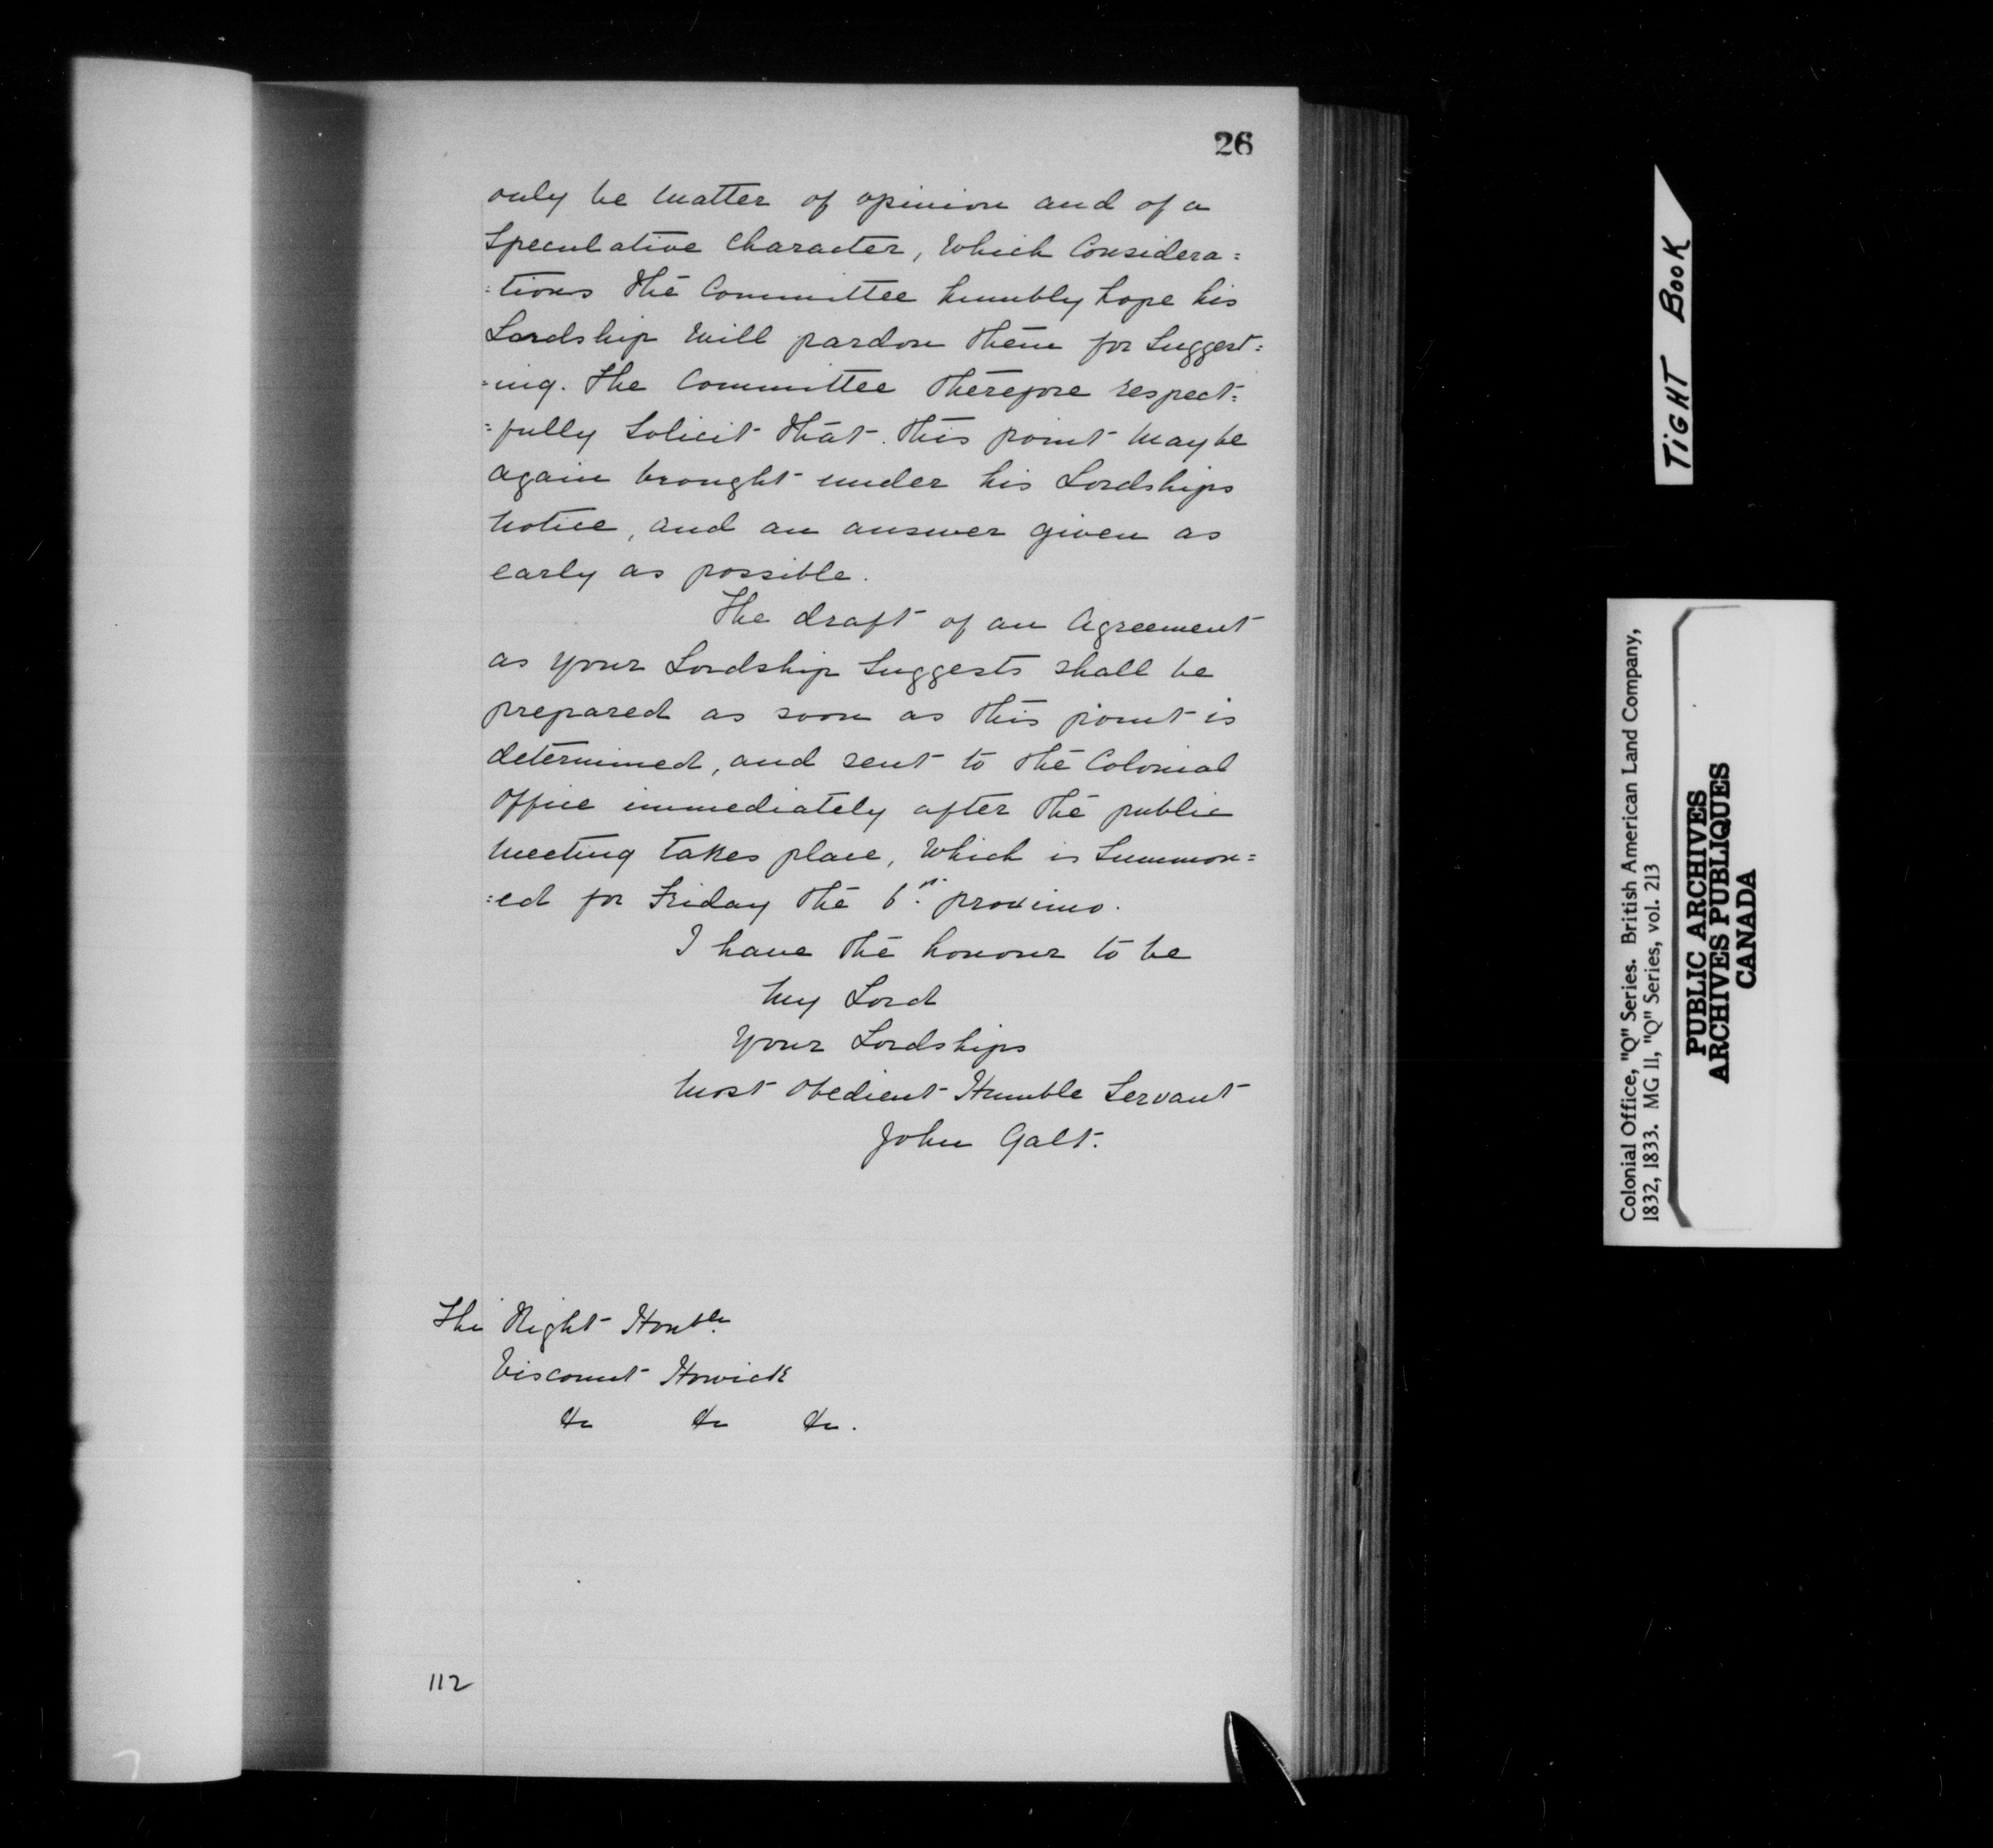 26
only be matter of opinion and of a
Speculative Character, Which Considera=
=tions the Committee humbly hope his
Lordship Will pardon them for Suggest=
=ing. The Committee therefore respect=
=fully Solicit that this point May be
again brought under his Lordships
Notice, and an answer given as
early as possible.
The draft of an Agreement
as your Lordship Suggests shall be
prepared as soon as this point is
determined, and sent to the Colonial
Office immediately after the public
Meeting takes place, Which is Summon=
=ed for Friday the proximo.
I have the honour to be
My Lord
Your Lordships
Most Obedient Humble Servant
John Galt.
The Right Honble
Viscount Howick
&c &c &c.
112
TIGHT BOOK
Colonial Office, "Q" Series. British American Land Company,
1832, 1833. MG 11, "Q" Series, vol. 213
PUBLIC ARCHIVES
ARCHIVES PUBLIQUES
CANADA